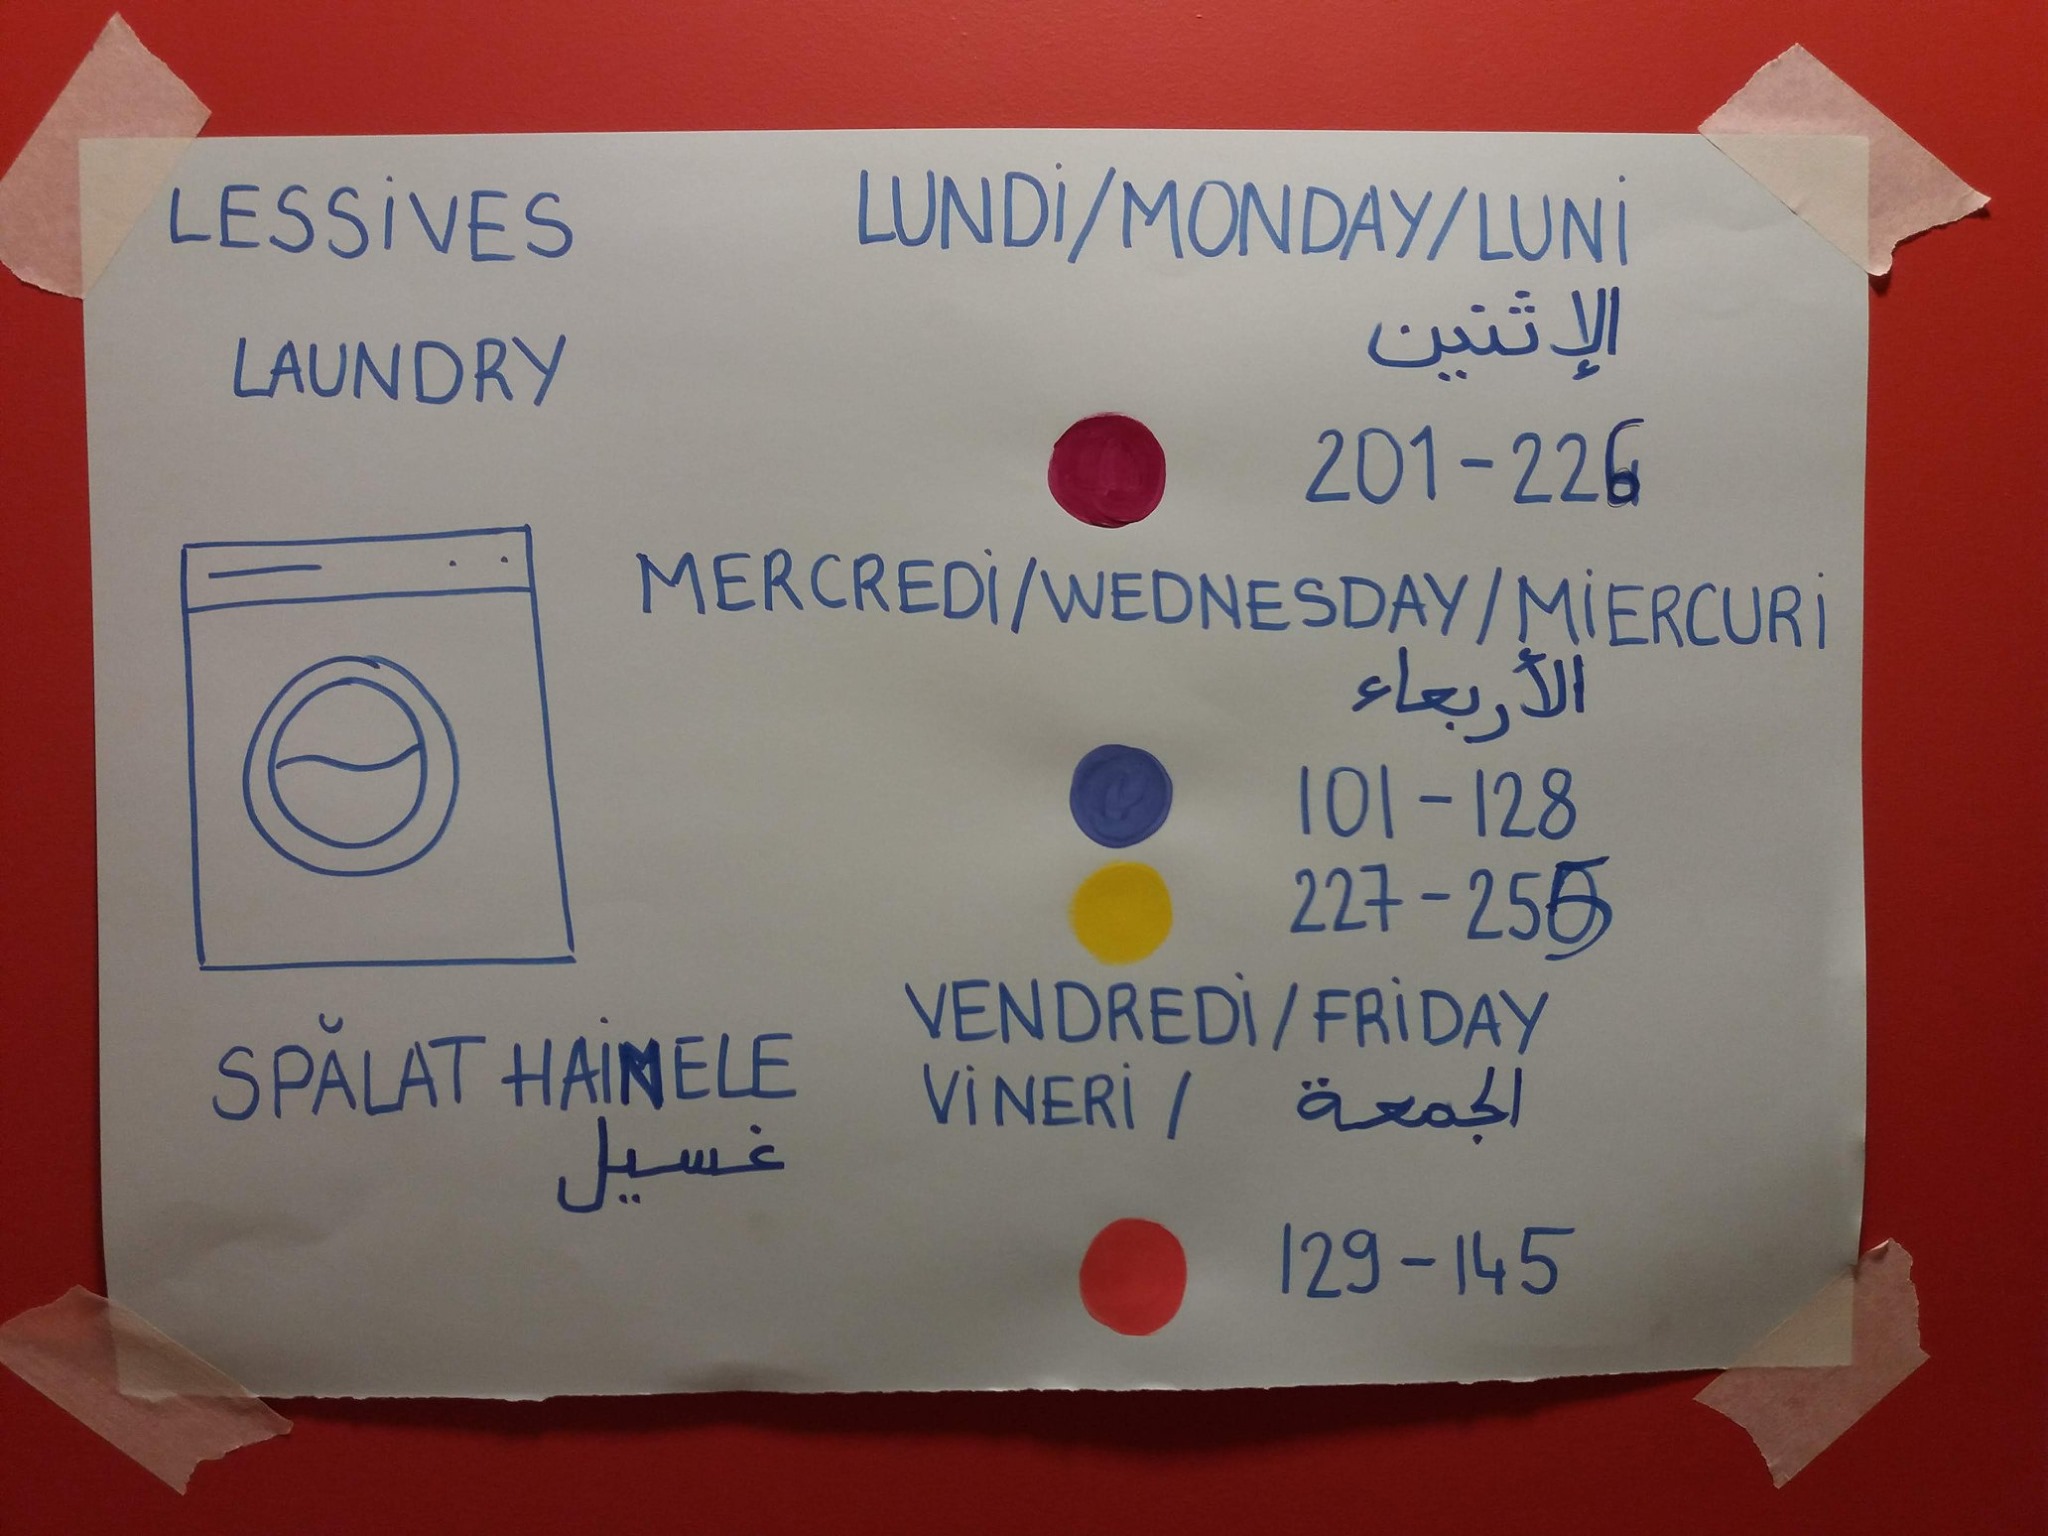 LESSIVES
LAUNDRY
SPĂLAT HAINELE
غسيل
LUNDI/MONDAY/LUNI
الإثنين
201-226
MERCREDI/WEDNESDAY/MIERCURI
الأربعاء
101-128
227-256
VENDREDI/FRIDAY
VINERI/ الجمعة
129-145